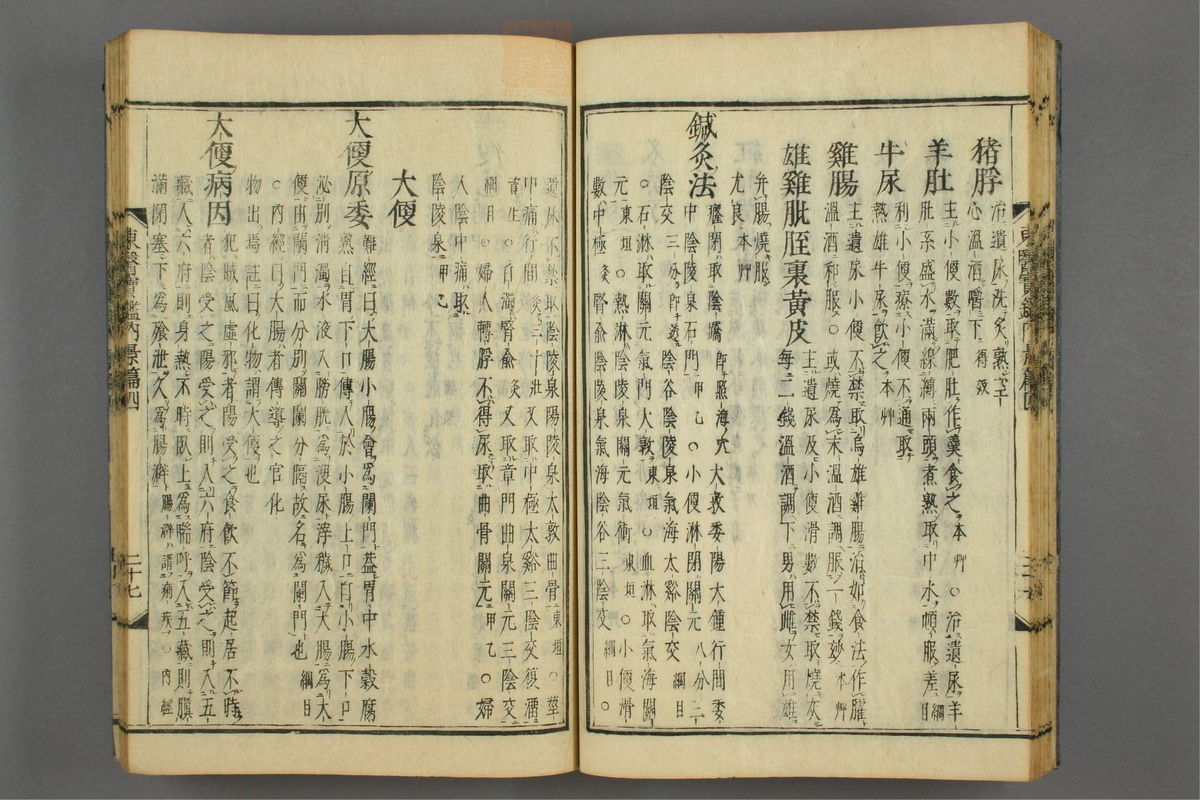 猪脬 治遺尿洗炙熟空
心溫酒嚼下 得效
羊肚 主小便數取肥肚作羹食之 本草 ○治遺尿羊
肚系盛水滿線縛兩頭煮熟取中水頓服差 綱目
牛尿 利小便療小便不通取
熱雄牛尿飲之 本草
雞腸 主遺尿小便不禁取烏雄雞腸治如食法作臛
溫酒和服○或燒爲末溫酒調服一錢妙 本草
雄雞肶胵裏黃皮 主遺尿及小便滑數不禁取燒灰
每二錢溫酒調下男用雌女用雄
幷腸燒服
尤良 本草
鍼灸法 癃閉取陰蹻 卽照海穴 大敦委陽大鍾行間委
中陰陵泉石門 甲乙 ○小便淋閉關元八分二
陰交三分卽透陰谷陰陵泉氣海太谿陰交 綱目
○石淋取關元氣門大敦 東垣 ○血淋取氣海關
元 東垣 ○熱淋陰陵泉關元氣衝 東垣 ○小便滑
數中極灸腎兪陰陵泉氣海陰谷三陰交 綱目 ○
東醫寶鑑內景篇四
遺尿不禁取陰陵泉陽陵泉大敦曲骨 東垣 ○莖
中痛行間灸三十壯又取中極太谿三陰交復溜
資生 ○白濁腎兪灸又取章門曲泉關元三陰交
綱目 ○婦人轉脬不得尿取曲骨關元 甲乙 ○婦
人陰中痛取
陰陵泉 甲乙
大便
大便原委 難經曰大腸小腸會爲闌門蓋胃中水穀腐
熟自胃下口傳入於小腸上口自小腸下口
泌別淸濁水液入膀胱爲溲尿滓穢入大腸爲大
便由闌門而分別關闌分隔故名爲闌門也 綱目
○內經曰大腸者傳導之官化
物出焉註曰化物謂大便也
大便病因 犯賊風虛邪者陽受之食飮不節起居不時
者陰受之陽受之則入六府陰受之則入五
藏入六府則身熱不時臥上爲喘呼入五藏則䐜
滿閉塞下爲飱泄久爲腸澼 腸澼謂痢疾○內經
東醫寶鑑內景篇四 二十七